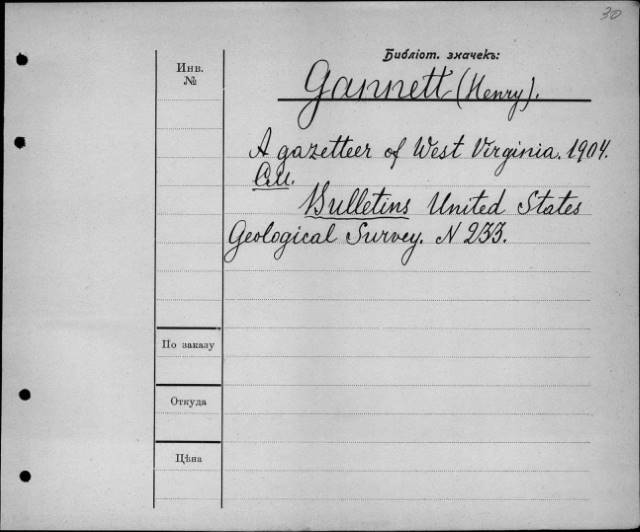 30
Библіот. значекъ:
Инв.
№
Gannett (Henry).
A gazetteer of West Virginia. 1904.
См.
Bulletins United States
Geological Survey. N 233.
По заказу
Откуда
Цѣна